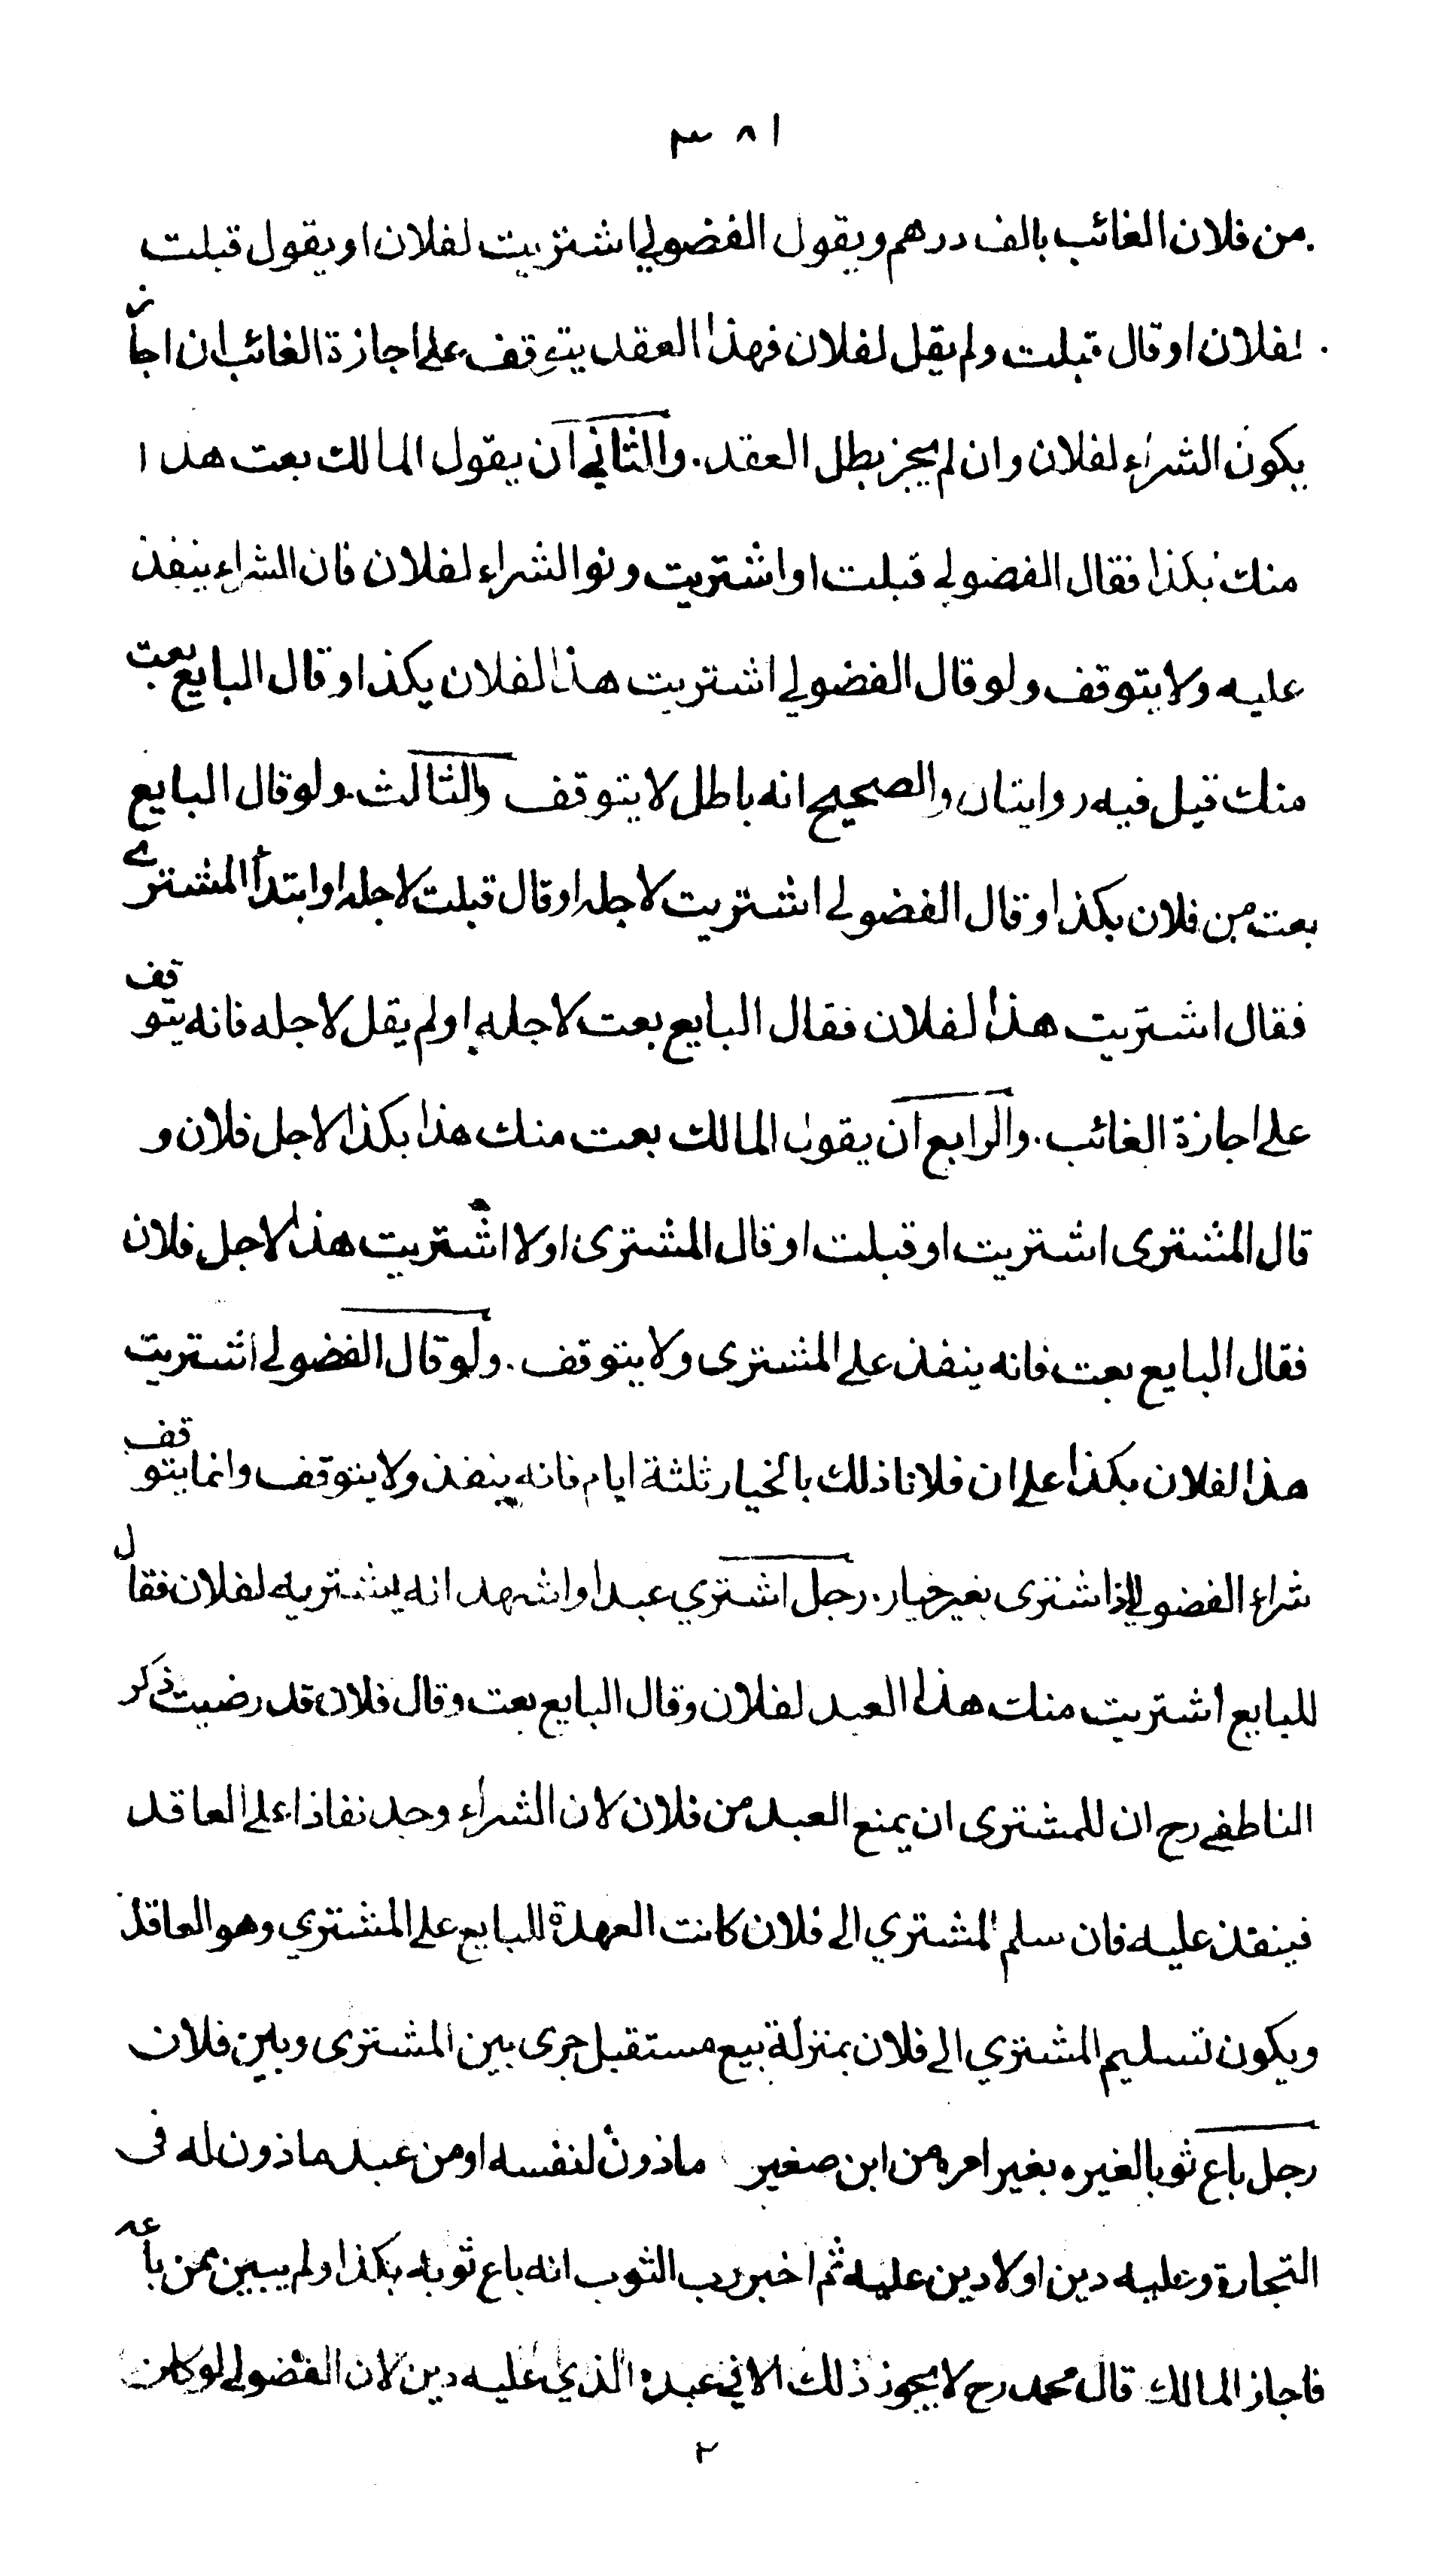 ٣٨١
من فلان الغائب بالف درهم ويقول الفضولي اشتريت لفلان او يقول قبلت
لفلان او قال قبلت ولم يقل لفلان فهذا العقد يتوقف على اجازة الغائب ان اجاز
يكون الشراء لفلان وان لم يجز بطل العقد. والثاني ان يقول المالك بعت هذا
منك بكذا فقال الفضولي قبلت او اشتريت ونوا الشراء لفلان فان الشراء ينفذ
عليه ولا يتوقف ولو قال الفضولي اشتريت هذا لفلان بكذا وقال البايع بعت
منك قيل فيه روايتان والصحيح انه باطل لا يتوقف والثالث. ولو قال البايع
بعت من فلان بكذا وقال الفضولي اشتريت لاجله او قال قبلت لاجله او ابتدأ المشتري
فقال اشتريت هذا لفلان فقال البايع بعت لاجله او لم يقل لاجله فانه يتوقف
على اجازة الغائب. والرابع ان يقول المالك بعت منك هذا بكذا لاجل فلان و
قال المشترى اشتريت او قبلت او قال المشترى اولا اشتريت هذا لاجل فلان
فقال البايع بعت فانه ينفذ على المشترى ولا يتوقف. ولو قال الفضولي اشتريت
هذا لفلان بكذا على ان فلانا ذلك بالخيار ثلثة ايام فانه ينفذ ولا يتوقف وانما يتوقف
شراء الفضولي اذا اشترى بغير خيار. رجل اشتري عبدا واشهد انه يشتريه لفلان فقال
للبايع اشتريت منك هذا العبد لفلان وقال البايع بعت وقال فلان قد رضيت ذكر
الناطفي رح ان للمشترى ان يمنع العبد من فلان لان الشراء وجد نفاذا على العاقد
فينفذ عليه فان سلم المشتري الى فلان كانت العهدة للبايع على المشتري وهو العاقد
ويكون تسليم المشتري الى فلان بمنزلة بيع مستقبل جرى بين المشترى وبين فلان
رجل باع ثوبا لغيره بغير امره من ابن صغير ماذون لنفسه او من عبد ماذون له فى
التجارة وعليه دين او لا دين عليه ثم اخبر رب الثوب انه باع ثوبه بكذا ولم يبين ممن باعه
فاجاز المالك قال محمد رح لا يجوز ذلك الا في عبده الذي عليه دين لان الفضولي لو كان
٢